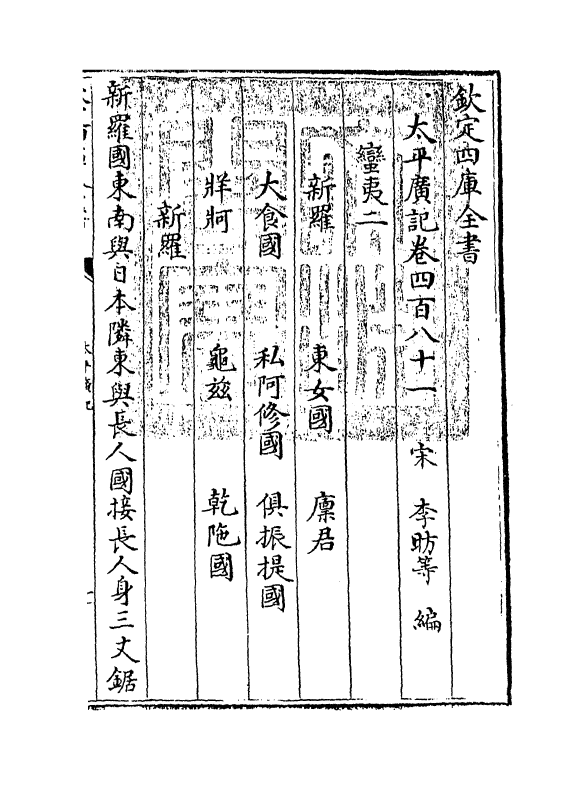 欽定四庫全書
太平廣記卷四百八十一 宋 李昉等 編
蠻夷二
新羅 東女國 廩君
大食國 私阿修國 俱振提國
牂牁 龜茲 乾陁國
新羅
新羅國東南與日本隣東與長人國接長人身三丈鋸